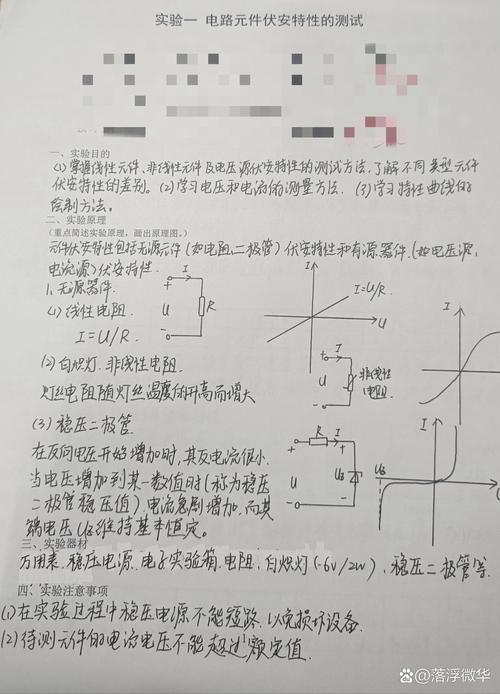 实验一 电路元件伏安特性的测试
一、实验目的
(1)掌握线性元件、非线性元件及电压源伏安特性的测试方法,了解不同类型元件
伏安特性的差别。(2)学习电压和电流的测量方法.(3)学习特性曲线的
绘制方法。
二、实验原理
(重点简述实验原理,画出原理图。)
元件伏安特性包括无源元件(如电阻、二极管)伏安特性和有源器件.(如电压源,
电流源)伏安特性.
1.无源器件.
(1)线性电阻.
I=U/R
+ I U R -
I I=U/R U
(2)白炽灯.非线性电阻.
灯丝电阻随灯丝温度的升高而增大
+ I U 非线性电阻 -
I
(3)稳压二极管
在反向电压开始增加时,其反电流很小.
当电压增加到某一数值时(称为稳压
二极管稳压值),电流急剧增加,而其
端电压维持基本恒定。
+ R I U -
I
三、实验器材
万用表、稳压电源、电子实验箱、电阻、白炽灯(-6v/2w)、稳压二极管等.
四、实验注意事项
(1)在实验过程中稳压电源不能短路,以免损坏设备.
(2)待测元件的电流电压不能超过额定值.
落浮微华